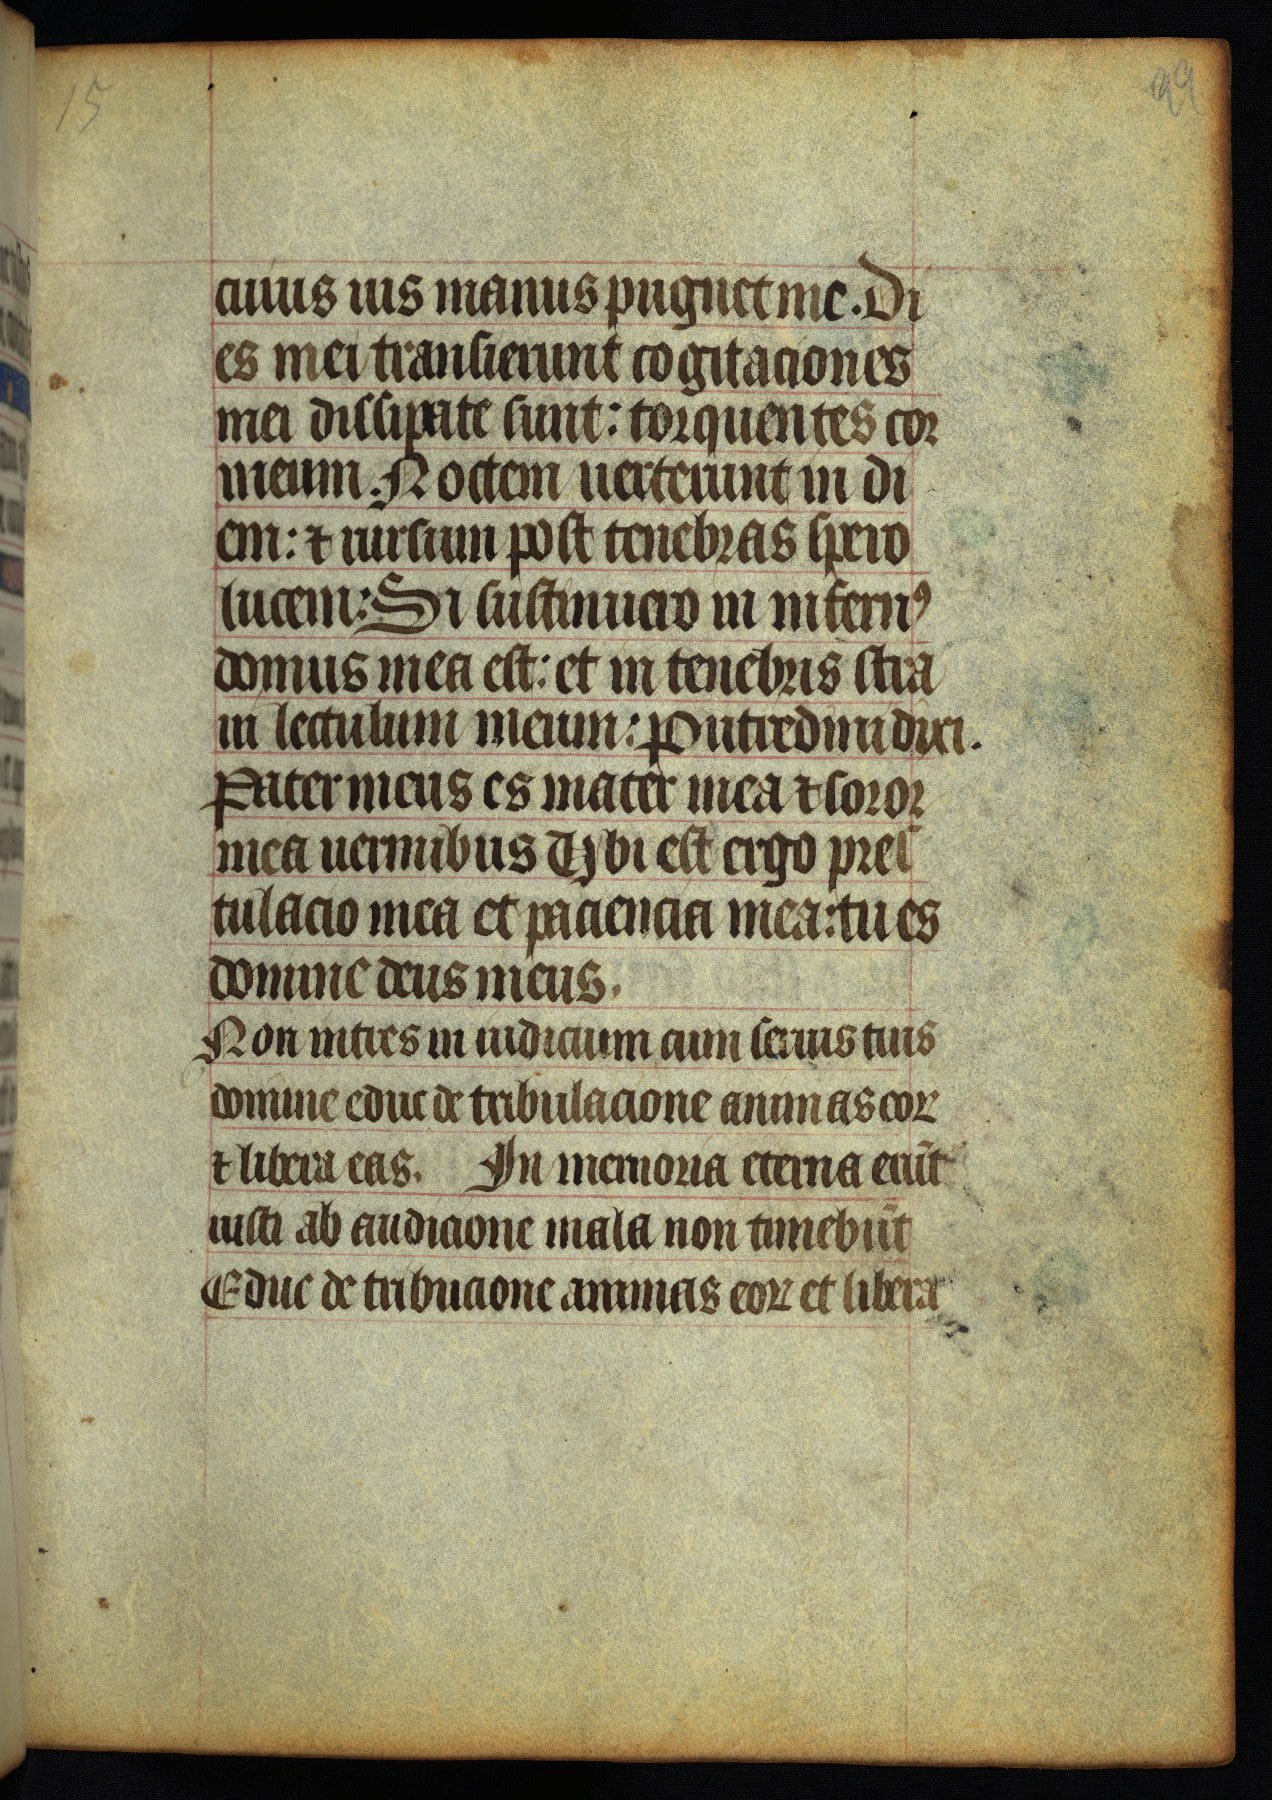 15
99
cuius uis manus pugnet me. Di
es mei transierunt cogitaciones
mei dissipate sunt: torquentes cor
meum. Noctem uerterunt in di
em: ⁊ rursum post tenebras spero
lucem: Si sustinuero in infernꝰ
domus mea est: et in tenebris stra
in lectulum meum: Putredini dixi.
Pater meus es mater mea ⁊ soror
mea uermibus Ubi est ergo pres
tulacio mea et paciencia mea: tu es
domine deus meus.
Non intres in iudicium cum seruis tuis
domine educ de tribulacione animas eoꝝ
⁊ libera eas. In memoria eterna erūt
iusti ab audicione mala non timebūt
Educ de tribucione animas eoꝝ et libera